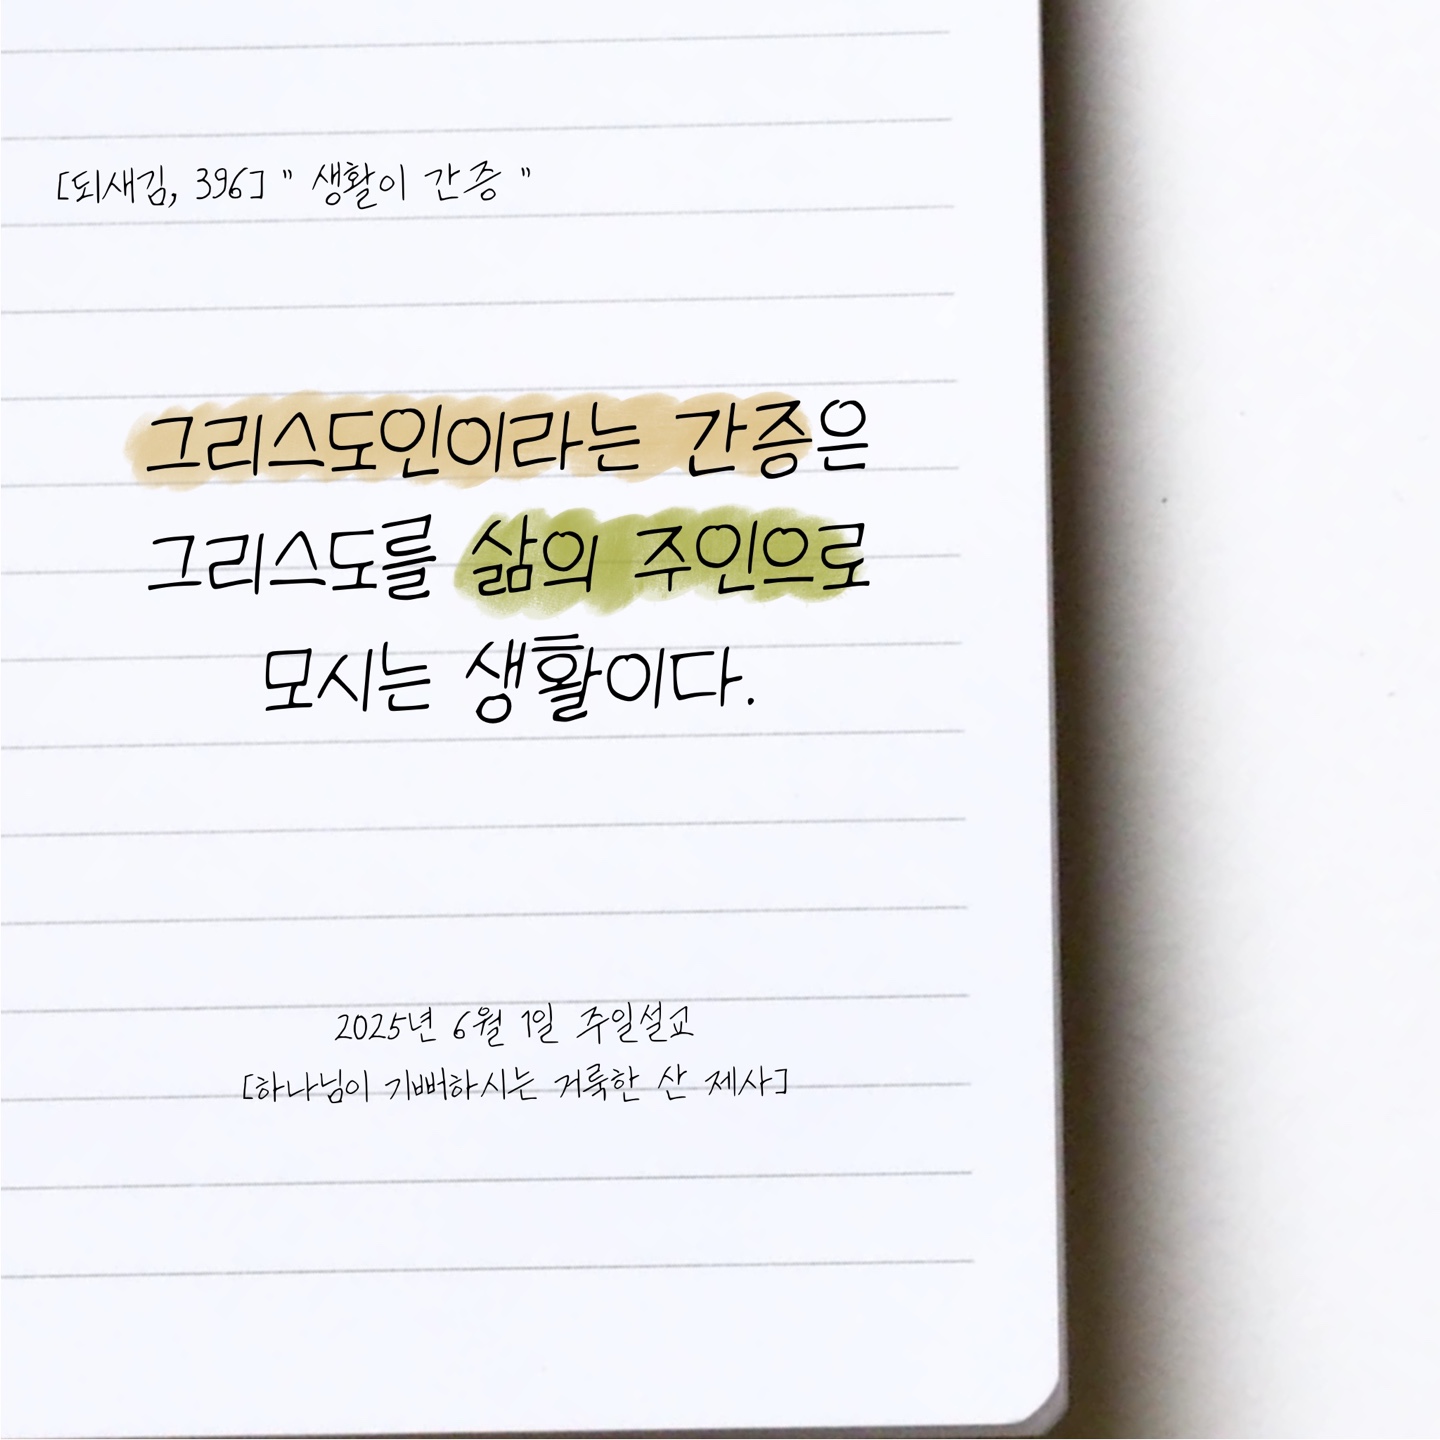 [되새김, 396] " 생활이 간증 "
그리스도인이라는 간증은
그리스도를 삶의 주인으로
모시는 생활이다.
2025년 6월 1일 주일설교
[하나님이 기뻐하시는 거룩한 산 제사]